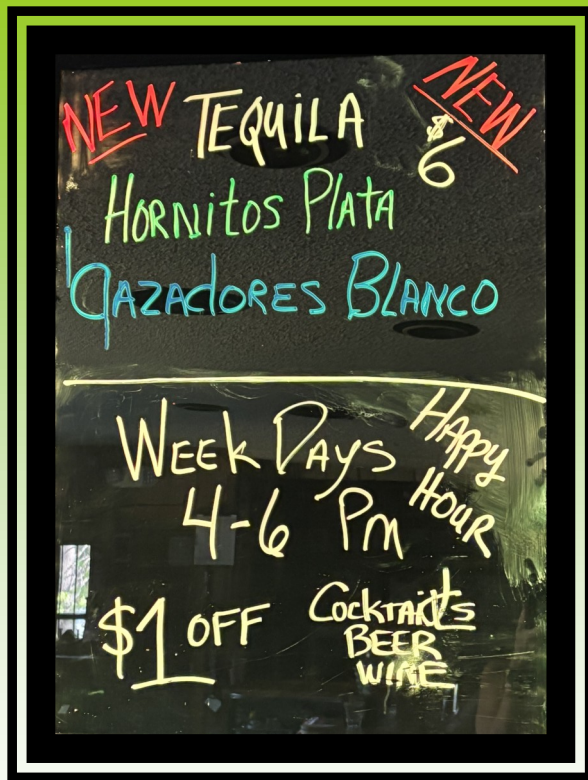 NEW TEQUILA $6 NEW
HORNITOS PLATA
CAZADORES BLANCO
WEEK DAYS HAPPY
4-6 PM HOUR
$1 OFF COCKTAILS
BEER
WINE